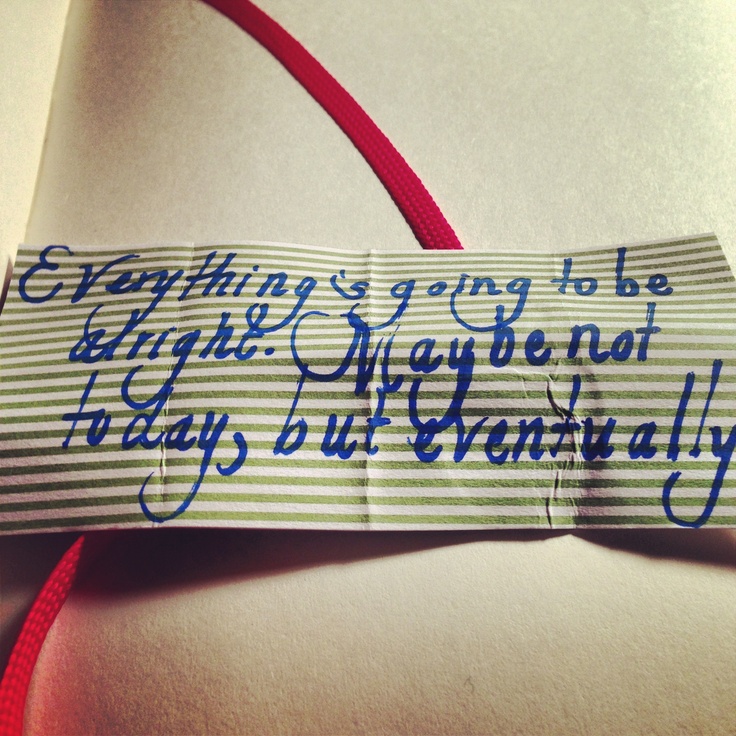 Everything's going to be
alright. Maybe not
today, but eventually